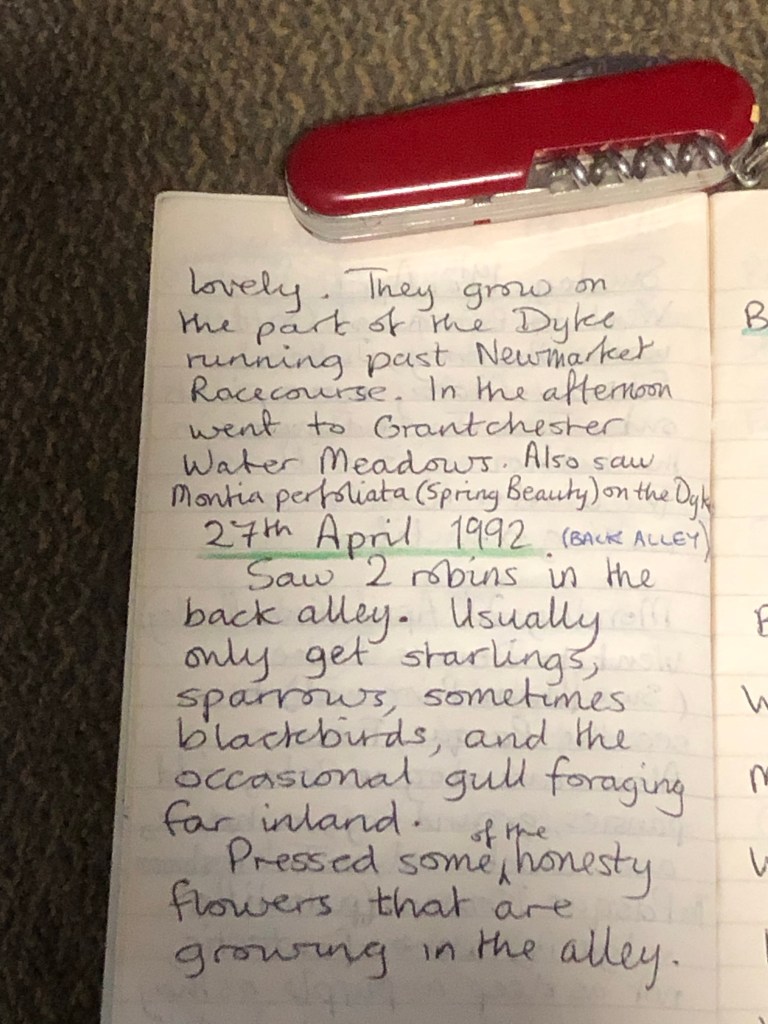 lovely. They grow on
the part of the Dyke
running past Newmarket
Racecourse. In the afternoon
went to Grantchester
Water Meadows. Also saw
Montia perfoliata (Spring Beauty) on the Dyk
27th April 1992. (BACK ALLEY)
Saw 2 robins in the
back alley. Usually
only get starlings,
sparrows, sometimes
blackbirds, and the
occasional gull foraging
far inland.
Pressed some of the honesty
flowers that are
growing in the alley.